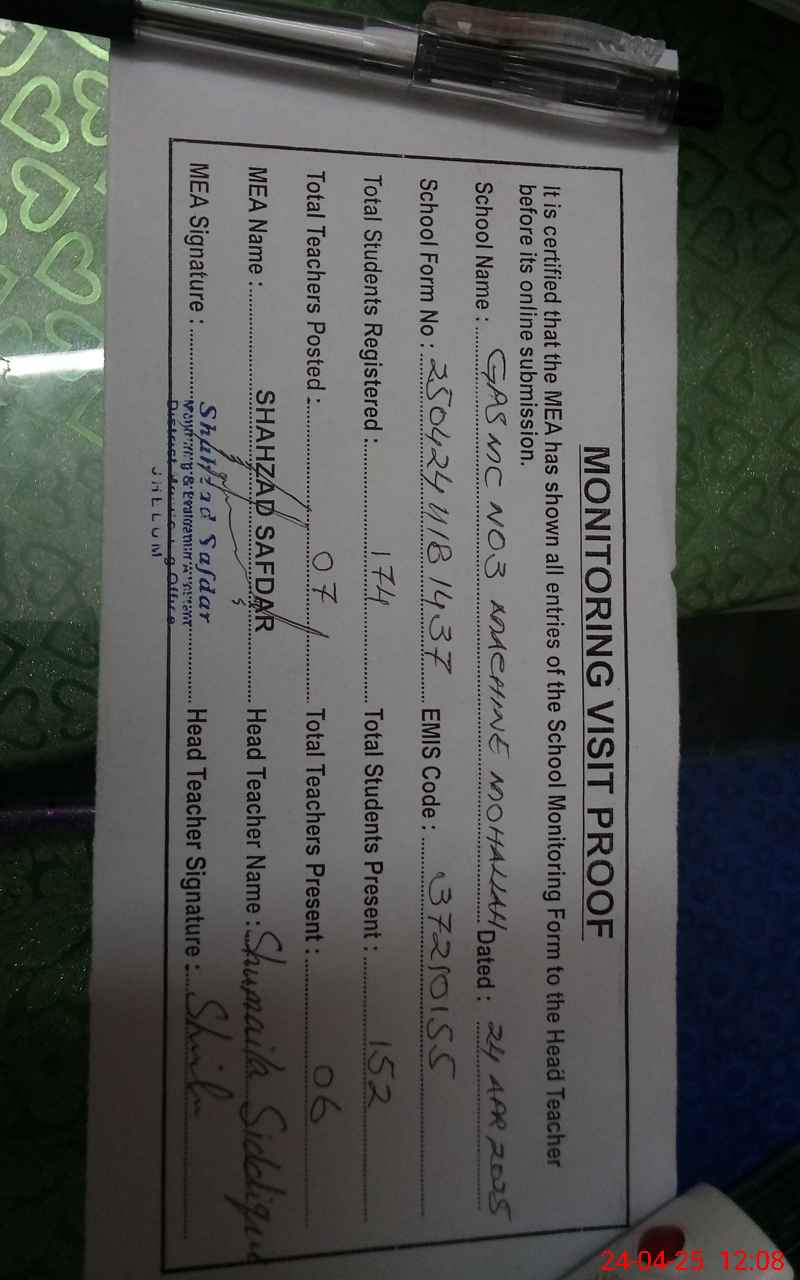 MONITORING VISIT PROOF
It is certified that the MEA has shown all entries of the School Monitoring Form to the Head Teacher
before its online submission.
School Name : GPS MC NO3 MACHINE MOHALLAH Dated : 24 APR 2025
School Form No : 250424 1181437 EMIS Code : 37210155
Total Students Registered : 174 Total Students Present : 152
Total Teachers Posted : 07 Total Teachers Present : 06
MEA Name : SHAHZAD SAFDAR Head Teacher Name : Shumaila Siddique
MEA Signature : Head Teacher Signature :
Shahzad Safdar
Monitoring & Evaluation Assistant
District Monitoring Office
JHELUM
24-04-25 12:08